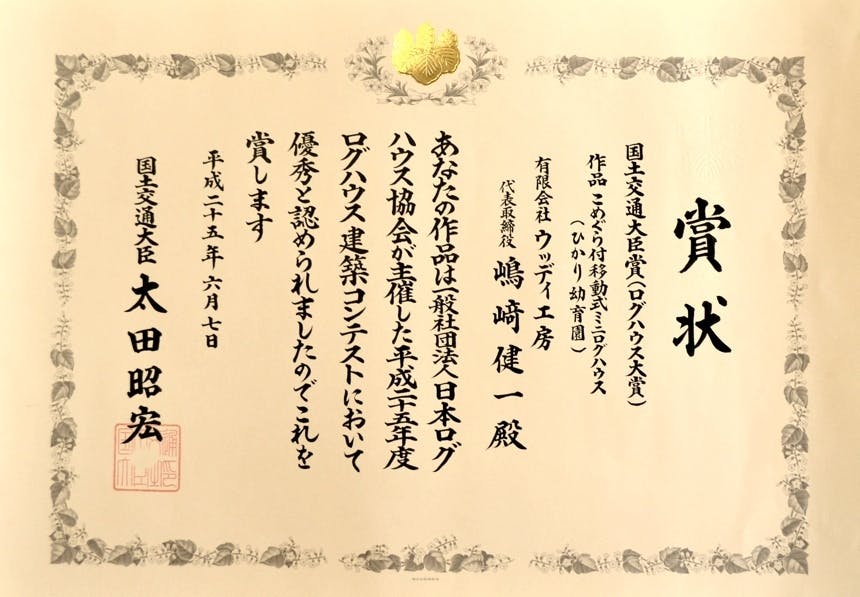 賞状
国土交通大臣賞(ログハウス大賞)
作品 こめぐら付移動式ミニログハウス
(ひかり幼育園)
有限会社 ウッディ工房
代表取締役 嶋﨑健一殿
あなたの作品は一般社団法人日本ログ
ハウス協会が主催した平成二十五年度
ログハウス建築コンテストにおいて
優秀と認められましたのでこれを
賞します
平成二十五年六月七日
国土交通大臣 太田昭宏